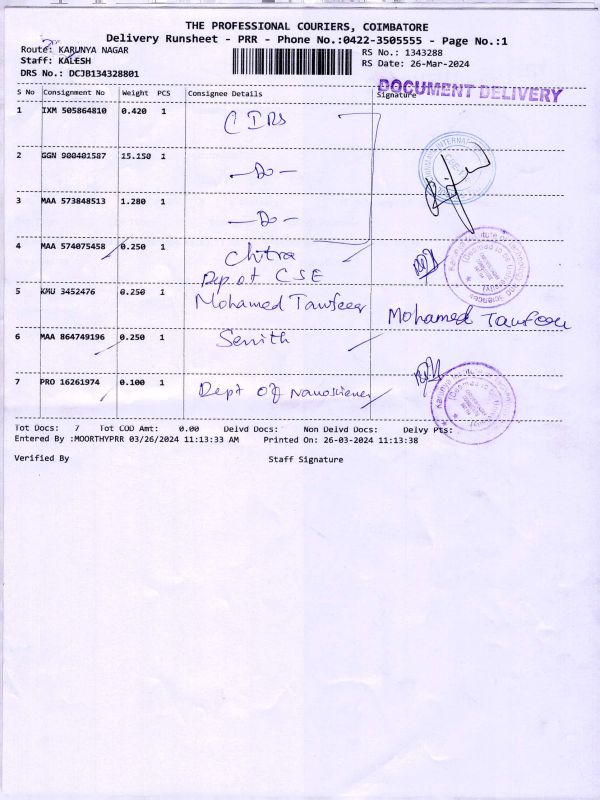 THE PROFESSIONAL COURIERS, COIMBATORE
Delivery Runsheet - PRR - Phone No.:0422-3505555 - Page No.:1
Route: KARUNYA NAGAR
RS No.: 1343288
Staff: KALESH
RS Date: 26-Mar-2024
DRS No.: DCJB134328801
DOCUMENT DELIVERY
S No Consignment No Weight PCS Consignee Details Signature
1 IXM 505864810 0.420 1
2 GGN 900401587 15.150 1 —Do—
3 MAA 573848513 1.280 1 —Do—
4 MAA 574075458 0.250 1 Chitra
Dep of CSE
5 KMU 3452476 0.250 1 Mohamed Tawfeeq Mohamed Tawfeeq
6 MAA 864749196 0.250 1
7 PRO 16261974 0.100 1 Dept Of Nanoscience
Tot Docs: 7 Tot COD Amt: 0.00 Delvd Docs: Non Delvd Docs: Delvy Pts:
Entered By :MOORTHYPRR 03/26/2024 11:13:33 AM Printed On: 26-03-2024 11:13:38
Verified By Staff Signature